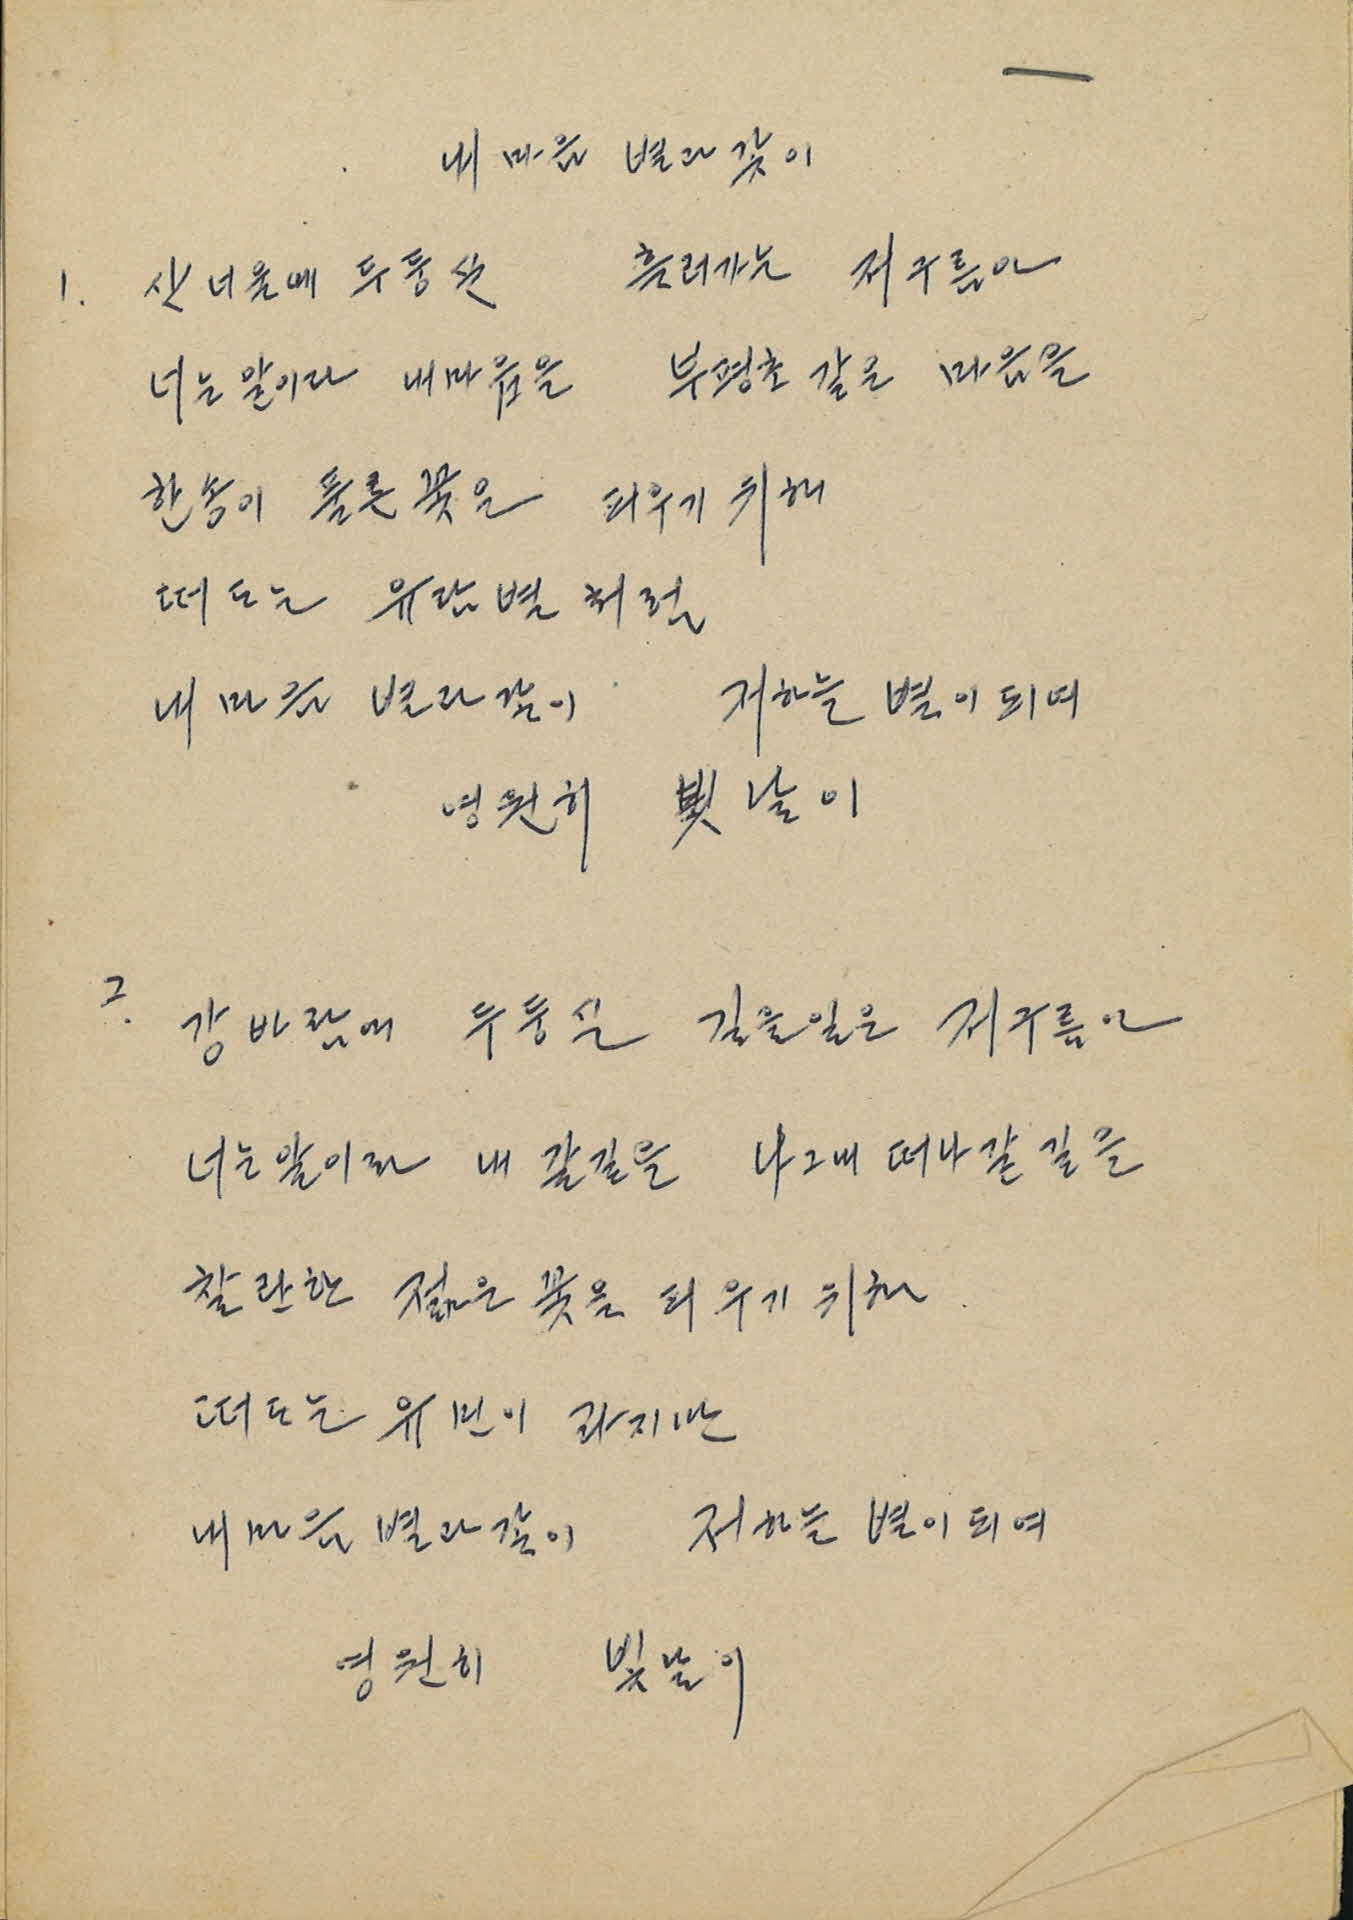 내 마음 별과 같이
1. 산 너울에 두둥실 흘러가는 저구름아
너는 알이라 내마음을 부평초 같은 마음을
한송이 푸른 꽃을 피우기 위해
떠도는 유람별 처럼
내 마음 별과같이 저하늘 별이 되여
영원히 빛날이
2. 강바람에 두둥실 길을잃은 저구름아
너는알이라 내 갈길을 나그네 떠나갈 길을
찰란한 젊은 꽃을 피우기 위해
떠도는 유민이 라지만
내마음 별과같이 저하늘 별이되여
영원히 빛날이